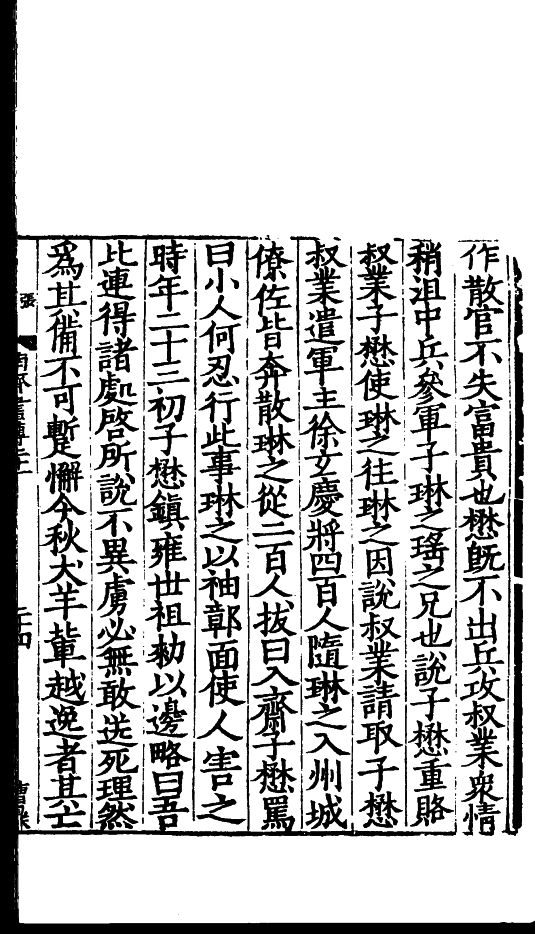 作散官不失富貴也懋既不出兵攻叔業衆情
稍沮中兵參軍于琳之瑤之兄也說子懋重賂
叔業子懋使琳之往琳之因說叔業請取子懋
叔業遣軍主徐玄慶將四百人隨琳之入州城
僚佐皆奔散琳之從二百人拔白入齋子懋罵
曰小人何忍行此事琳之以袖鄣面使人害之
時年二十三初子懋鎮雍世祖勑以邊略曰吾
比連得諸處啓所說不異虜必無敢送死理然
爲其備不可蹔懈今秋犬羊輩越逸者其亡
張
二十四